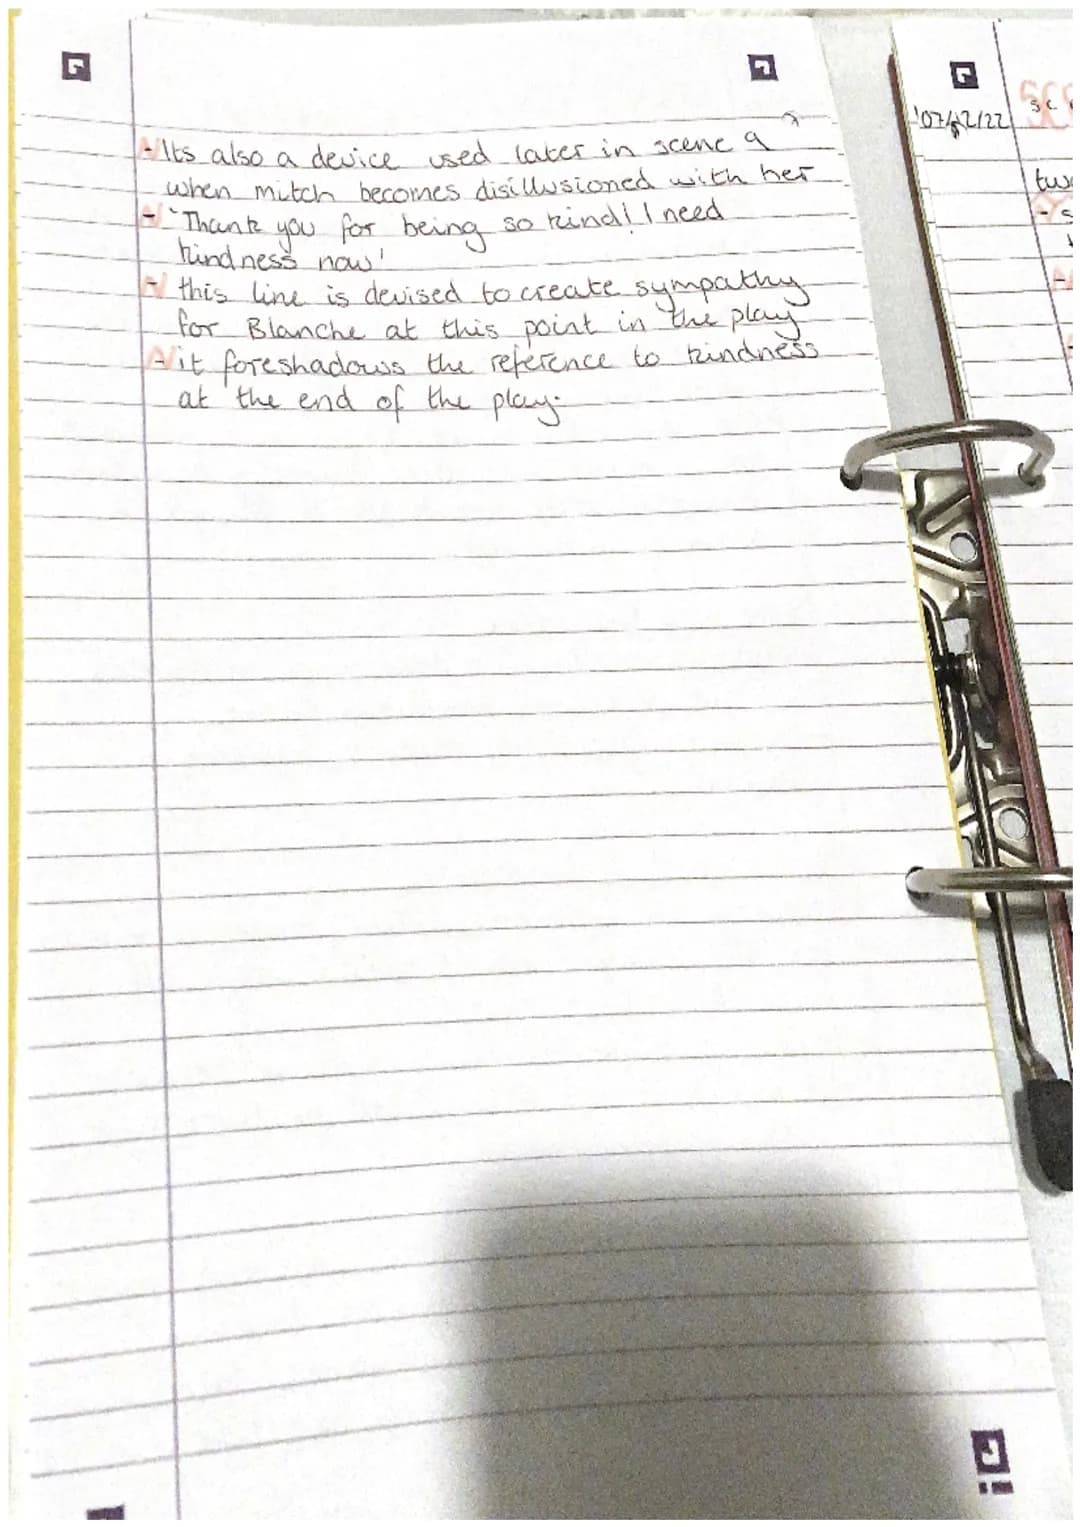 -Its also a device used later in scene 9
when mitch becomes disillusioned with her
- 'Thank you for being so kind! I need
kindness now'
- this line is devised to create sympathy
for Blanche at this point in the play
- it foreshadows the reference to kindness
at the end of the play.